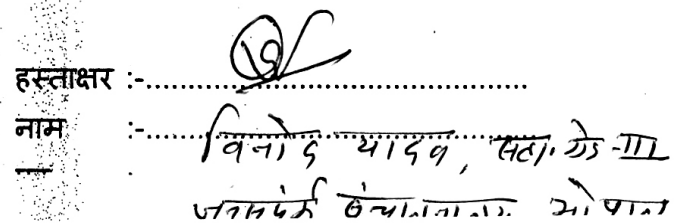 हस्ताक्षर :-....................................................
नाम :-.... विनोद यादव, सहा. ग्रेड-III
जनसंपर्क संचालनालय भोपाल